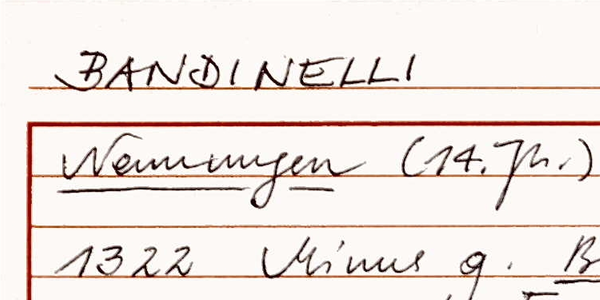 BANDINELLI
Nennungen (14. Jh.)
1322 Minus q. B